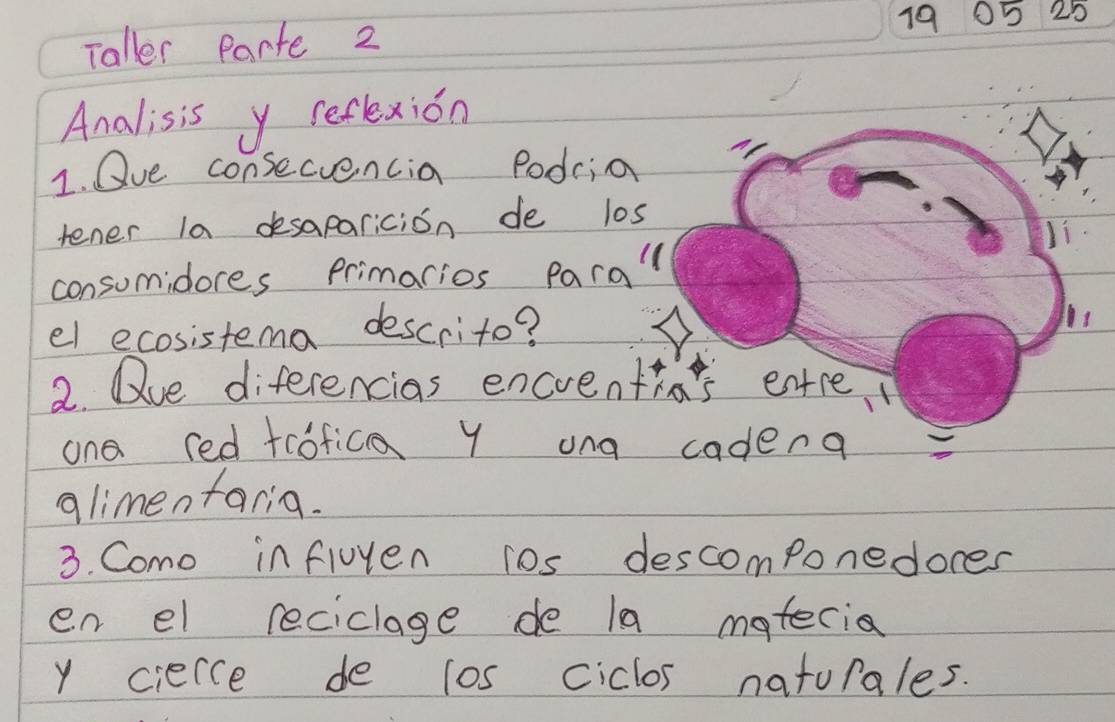 19 05 25
Taller Parte 2
Analisis y reflexión
1. Que consecuencia Podria
tener la desaparición de los
consumidores Primarios Para
el ecosistema descrito?
2. Que diferencias encuentras entre
una red trófica y una cadena
alimentaria.
3. Como influyen los descomponedores
en el reciclage de la materia
y cierre de los ciclos naturales.